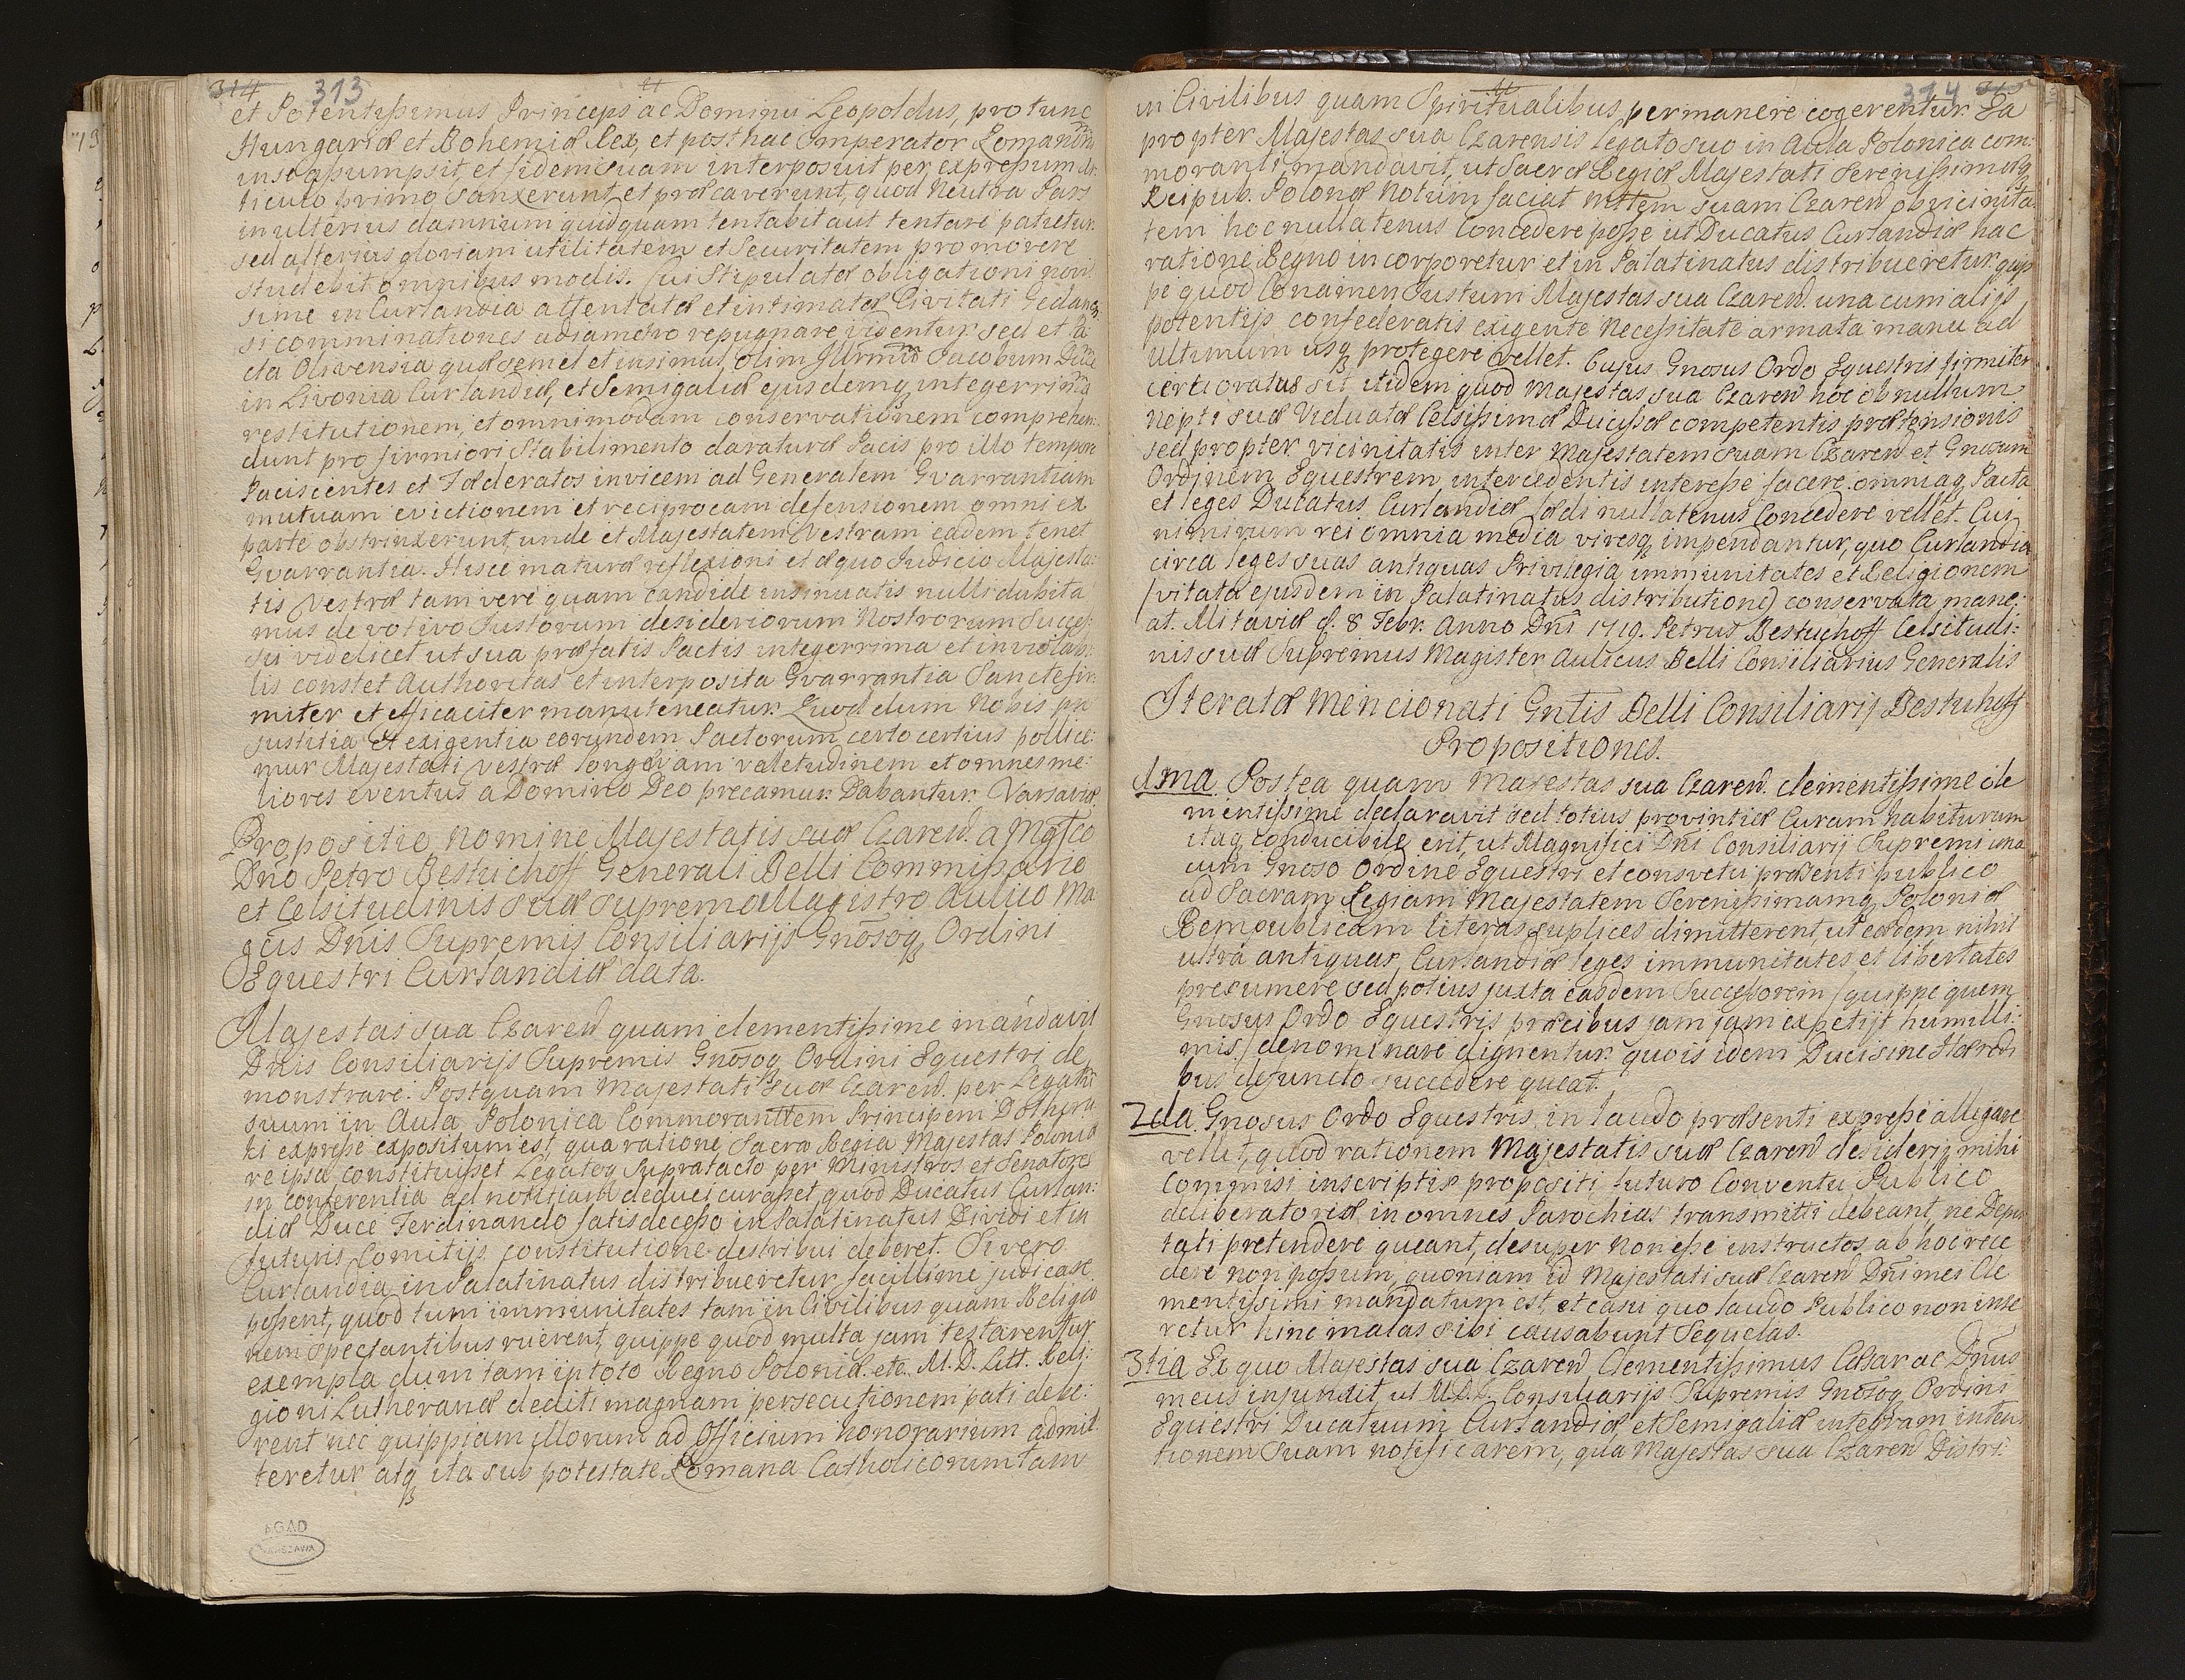 314 313
et Potentissimus Princeps ac Dominu Leopoldus, pro tunc
Hungariæ et Bohemiæ Rex, et post hac Imperator Romanorũ
in se assumpsit, et fidem suam interposuit per expressum Ar:
ticulo primo sanxerunt et præcaverunt, quod Neutra Pars
in ulterius damnum quidquam tentabit aut tentare patietur.
sed alterius gloriam utilitatem et Securitatem promovere
studebit omnibus modis. Cui Stipulatæ obligationi novis
sime in Curlandia attentatæ et intimatæ Civitati Gedanen
si comminationes adiametro repugnare videntur. sed et Pa
cta Olivensia quæ semel et insimul, olim Illrmũ Jacobum Ducẽ
in Livonia Curlandiæ, et Semigaliæ ejusdemq integerrimã
restitutionem, et omnimodam conservationem comprehen:
dunt pro firmiori Stabilimento daraturæ Pacis pro illo tempore
Paciscientes et Fæderatos invicem ad Generalem Gvarrantiam
mutuam evictionem et reciprocam defensionem omni ex
parte obstrinxerunt, unde et Majestatem Vestram eadem tenet
Gvarrantia. Hisce maturæ reflexioni et æquo Judicio Majesta:
tis Vestræ tam vere quam candide insinuatis nulli dubita
mus de votivo Justorum desideriorum Nostrorum Succes:
su videlicet ut sua præfatis Pactis integerrima et inviolab:
lis constet Authoritas et interposita Gvarrantia Sancte fir:
miter et efficaciter manuteneatur. Quod dum Nobis pu
justitia et exigentia eorundem Pactorum certo certius pollice:
mur Majestati Vestræ longævam valetudinem et omnes me:
liores eventus a Domino Deo precamur. Dabantur. Varsaviæ.
Propositio nomine Majestatis suæ Czareæ. a Mgfco
Dño Petro Bestuchoff Generali Belli Commissario
et Celsitudinis suæ supremo Magistro Aulico Ma
gcis Dñis Supremis Consiliarijs Gnosoq Ordini
Equestri Curlandiæ data.
Majestas sua Czareæ quam clementissime mandavit
Dnis Consiliarijs Supremis Gnosoq Ordini Equestri de
monstrare. Postquam Majestati suæ Czareæ. per Legatũ
suum in Aula Polonica Commorantem Principem Dothoru
ki expresse expositum est, qua ratione Sacra Regia Majestas Poloniæ
re ipsa constituisset Legatoq supratacto per Ministros et Senatores
in conferentia ad notitiam deduci curasset, quod Ducatus Curlan:
diæ Duce Ferdinando fatis decesso in Palatinatus Dividi et in
futuris Comitijs constitutione destribui deberet. Si vero
Curlandia in Palatinatus distribueretur, facillime judicare
possent, quod tum immunitates tam in Civilibus quam Religio
nem spectantibus ruerent, quippe quod multa jam testarentur
exempla dum tam in toto Regno Poloniæ. etc. M. D. Litt. Reli:
gioni Lutheranæ dediti magnam persecutionem pati debe:
rent nec quippiam illorum ad Officium honorarium admit
teretur atq ita sub potestate Romana Catholicorum tam
AGAD
WARSZAWA
314 315
in Civilibus quam Spiritualibus, permanere cogerentur. Ea
propter Majestas sua Czarensis Legato suo in Aula Polonica com:
moranti mandavit, ut Sacræ Regiæ Majestati Serenissimæq
Reipub. Polonæ Notum faciat Mttem suam Czareæ ob vicinita
tem hoc nullatenus Concedere posse ut Ducatus Curlandiæ hac
ratione Regno in corporetur et in Palatinatus distribueretur. quip
pe quod Conamen Justum Majestas sua Czareæ. una cum alijs
potentijs confederatis exigente Necessitate armata manu ad
ultimum usq protegere vellet. Cujus Gnosus Ordo Equestris firmiter
certioratus sit itidem quod Majestas sua Czareæ hoc ob nullum
Nepti suæ Viduatæ Celsissimæ Ducissæ competentis prætensionis
sed propter vicinitatis inter Majestatem suam Czareæ et Gnosum
Ordinem Equestrem intercedentis interesse facere. omniaq Pacta
et leges Ducatus Curlandiæ lædi nullatenus Concedere vellet. Cui
nimirum rei omnia media viresq impendantur, quo Curlandia
circa leges suas antiquas Privilegia immunitates et Religionem
(vitata ejusdem in Palatinatus distributione) conservata mane:
at. Mitaviæ d. 8 Febr. Anno Dñi 1719. Petrus Bestuchoff Celsitudi:
nis suæ Supremus Magister Aulicus Belli Consiliarius Generalis
Iteratæ Mencionati Gntis Belli Consiliarij Bestuhoff
Propositiones.
1ma. Postea quam Majestas sua Czareæ. clementissime cle
mentissime declaravit sed totius provintiæ Curam habiturum
itaq conducibile erit, ut Magnifici Dñi Consiliarij Supremi una
cum Gnoso Ordine Equestri et consvetu præsenti publico
ad Sacram Regiam Majestatem Serenissimamq Poloniæ
Rempublicam literas suplices dimitterent, ut eædem nihil
ultra antiquas Curlandiæ leges immunitates et libertates
presumere sed potius juxta easdem Successorem (quippe quem
Gnosus Ordo Equestris præcibus jam jam expetijt humilli:
mis) denominare dignentur. quo is idem Duci sine Hæredi
bus defuncto succedere queat.
2da. Gnosus Ordo Equestris in laudo præsenti expresse allegare
vellit, quod rationem Majestatis suæ Czareæ desiderij mihi
Commisi inscriptis propositi futuro Conventu Publico
deliberatoriæ in omnes Parochias transmitti debeant, ne Depu
tati pretendere queant, desuper Non esse instructos, ab hoc rece
dere non possum, quoniam id Majestati suæ Czareæ Dñi mei Cle
mentissimi mandatum est, et casu quo laudo Publico non inse
retur hinc malas sibi causabunt Sequelas.
3tia Ex quo Majestas sua Czareæ Clementissimus Cæsar ac Dñus
meus injundit ut M.D.D. Consiliarijs Supremis Gnosoq Ordini
Equestri Ducatuum Curlandiæ et Semigaliæ integram inten
tionem suam notificarem, qua Majestas sua Czareæ Distri: